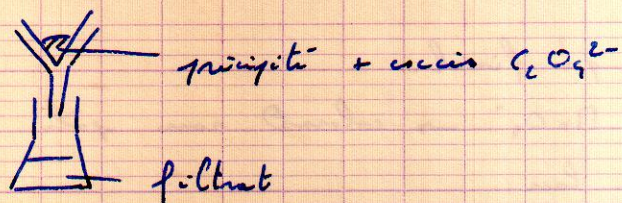 précipité + excès C₂O₄²⁻
filtrat